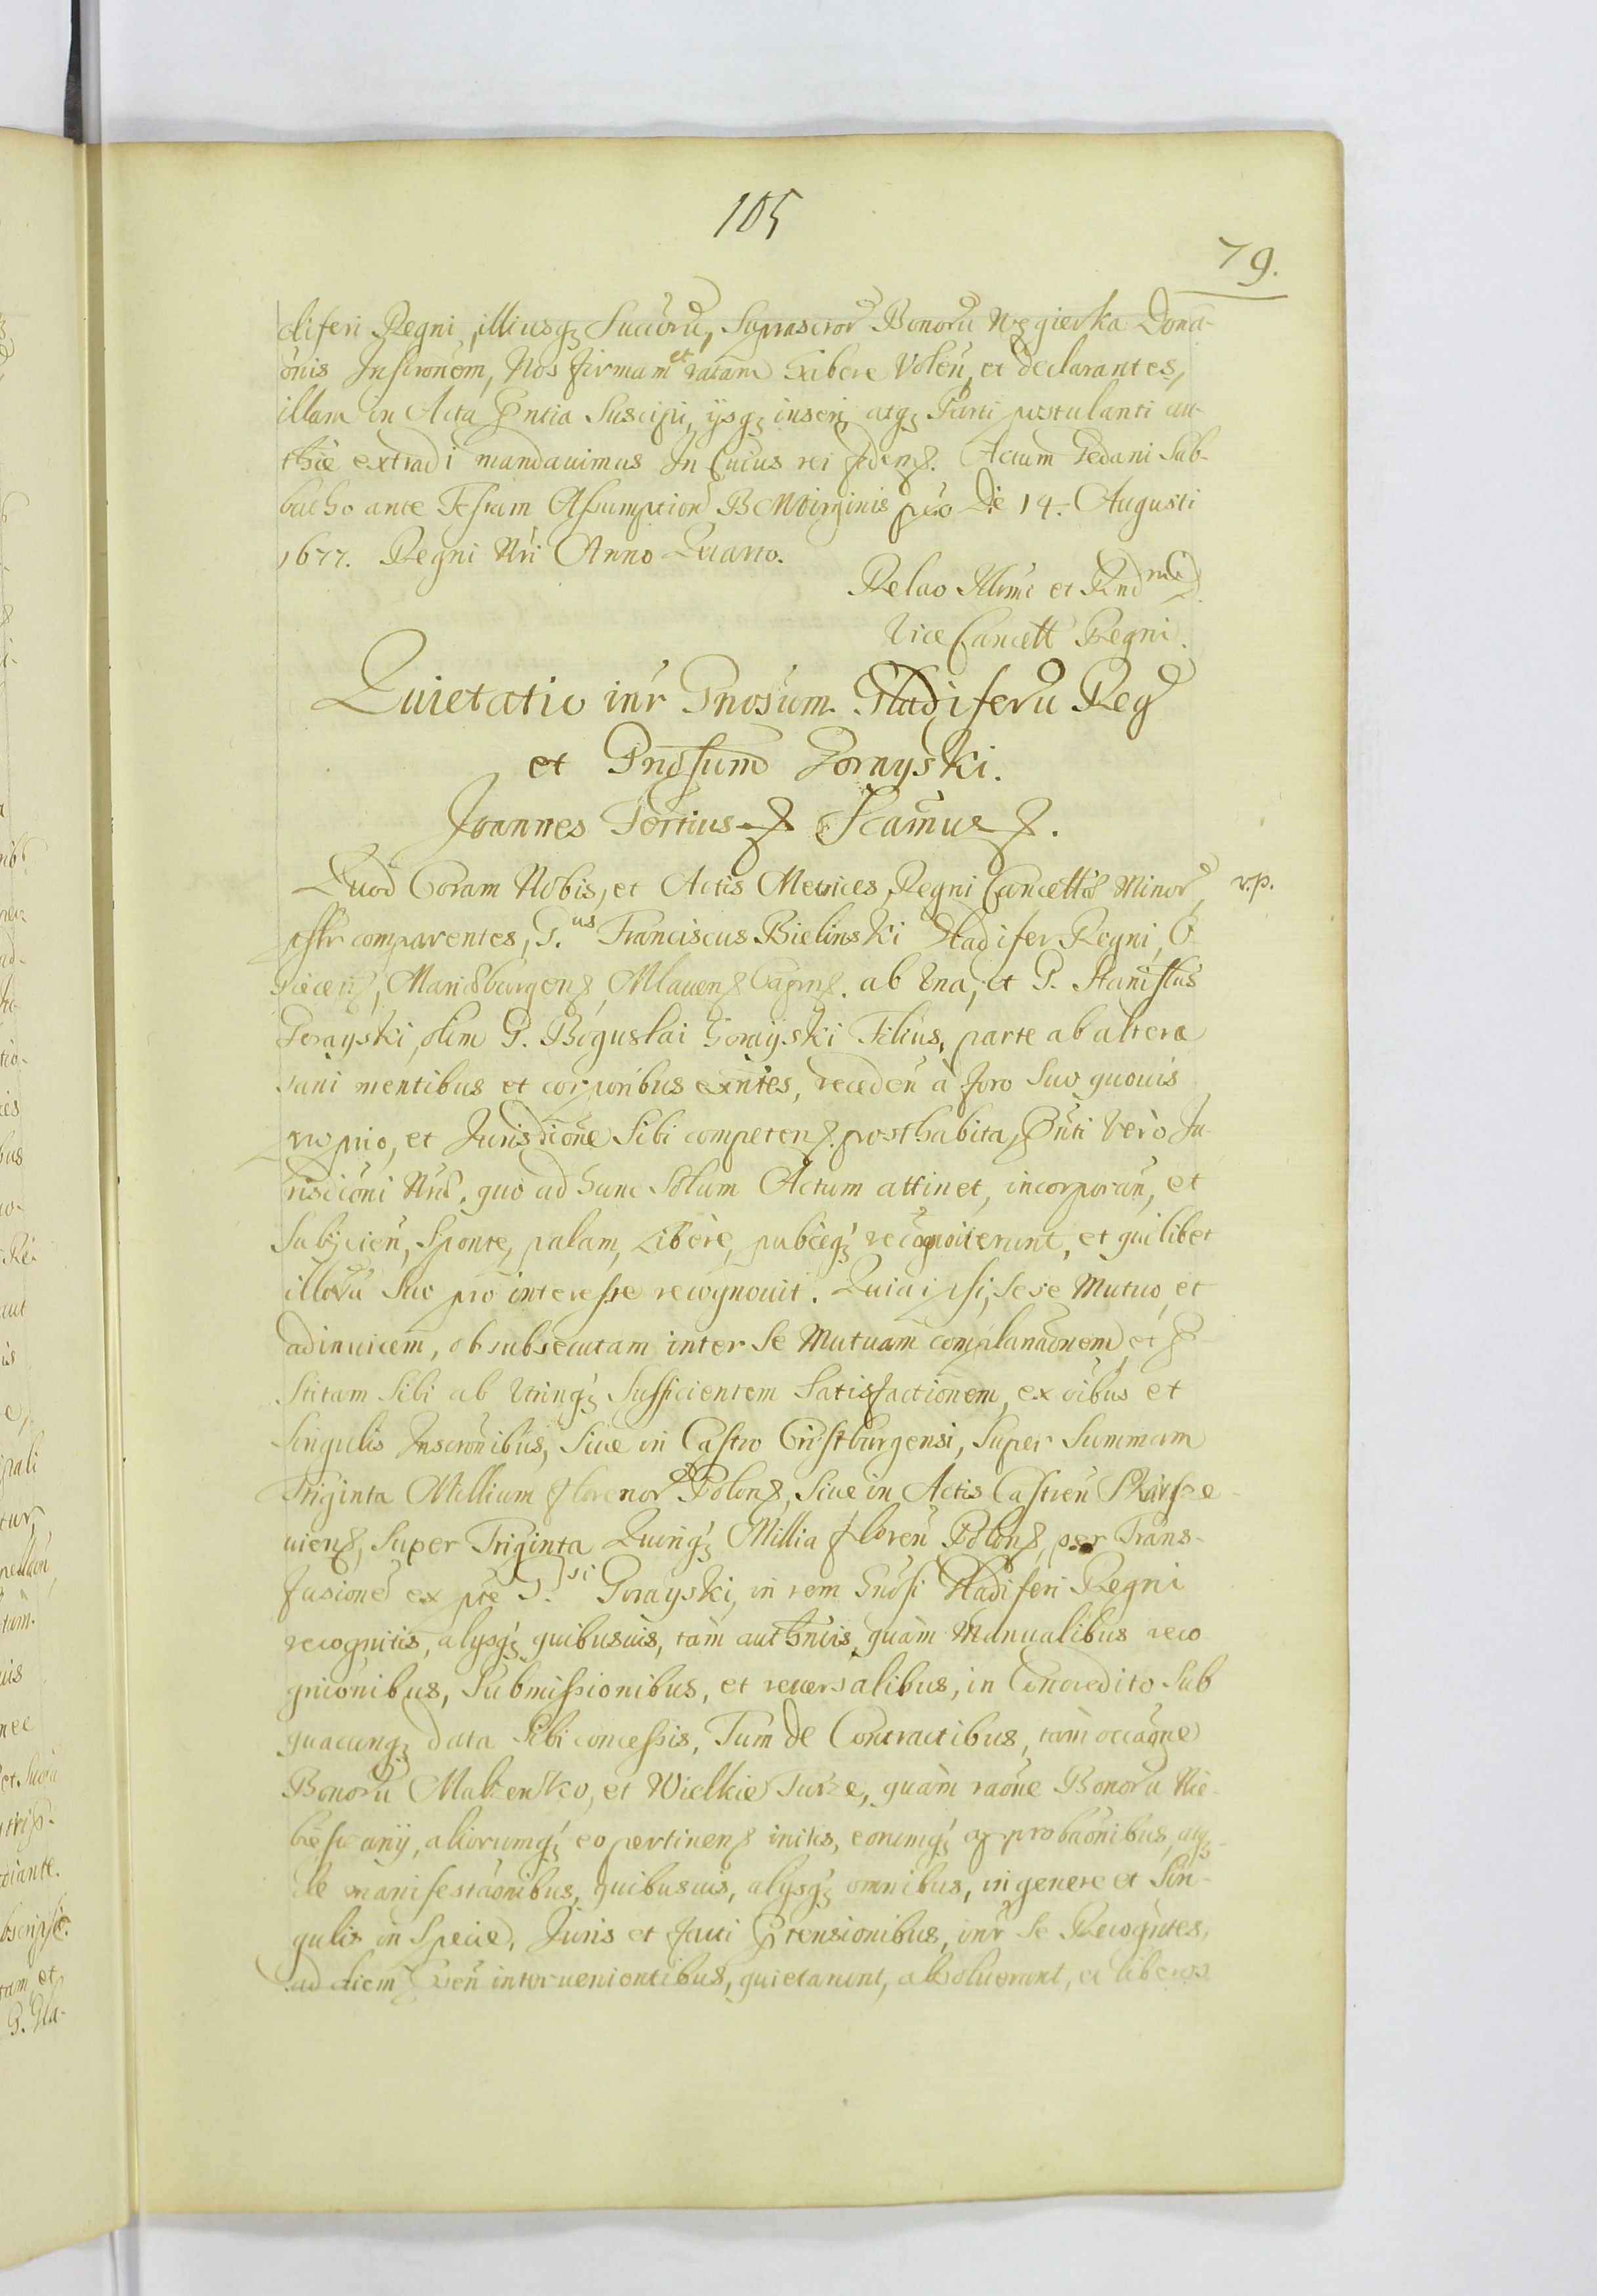 105
79.
diferi Regni, illiusq3 Succorũ, Suprascror Bonorũ Węgierka Dona-
õnis Inscronem, Nos firmam et ratam habere Volen, et declarantes,
illam in Acta Pñtia Suscipi, ijsq3 inseri, atq3 Parti postulanti au-
thce extradi mandauimus In Cuius rei fidem. Actum Gedani Sab-
batho ante Festum Assumption B M Virginis pto Die 14. Augusti
1677. Regni Nri Anno Quarto.
Relao Illrmi et Rndmi
Vice Cancell Regni.
Quietatio inr Gnosum Gladiferũ Reg
et Gnosum Gorayski.
Joannes Tertius Scamus.
Quod Coram Nobis, et Actis Metrices Regni Cancell Minor, r.p.
psltr comparentes, G.us Franciscus Bielinski Gladifer Regni,
Mariaeburgen, Mlauen Capns. ab Una, et G. Stanislus
Gorayski, olim G. Boguslai Gorayski Filius, parte ab altera
sani mentibus et corporibus exntes, receden à foro suo quouis
proprio, et Jurisdicione Sibi competen. posthabita, Pñti verò Ju-
risdicioni Nrae, quo ad hunc Solum Actum attinet, incorporan, et
Subijcien, Sponte, palam, Liberè, publceq3 recognouerunt, et quilibet
illorũ suo pro interesse recognouit. Quia ipsi, sese Mutuo, et
adinuicem, ob subsecutam inter se Mutuam complanaonem, et
stitam Sibi ab Utrinq3 Sufficientem Satisfactionem, ex oibus et
Singulis Inscronibus, Siue in Castro Cristburgensi, Super Summam
Triginta Millium florenor Polon, Siue in Actis Castren Skarsze-
uien, Super Triginta Quinq3 Millia floren Polon, per Trans-
fusione ex pte G.si Gorayski, in rem Gnosi Gladiferi Regni
recognitis, alijsq3 quibusuis, tàm authncis, quàm Manualibus reco
gnicionibus, Submissionibus, et reuersalibus, in Concredito Sub
quacunq3 data Sibi concessis, Tum de Contractibus, tàm occaone
Bonorũ Malzensko, et Wielkie Turze, quàm raone Bonorũ Nie-
aliorumq3 eo pertinen initis, eorumq3 approbaonibus, atq3
de manifestaonibus, quibusuis, alijsq3 omnibus, in genere et Sin-
gulis in Specie, Juris et facti Ptensionibus, inr se Recogntes,
ad diem interuenientibus, quietarunt, absoluerunt, et liberos